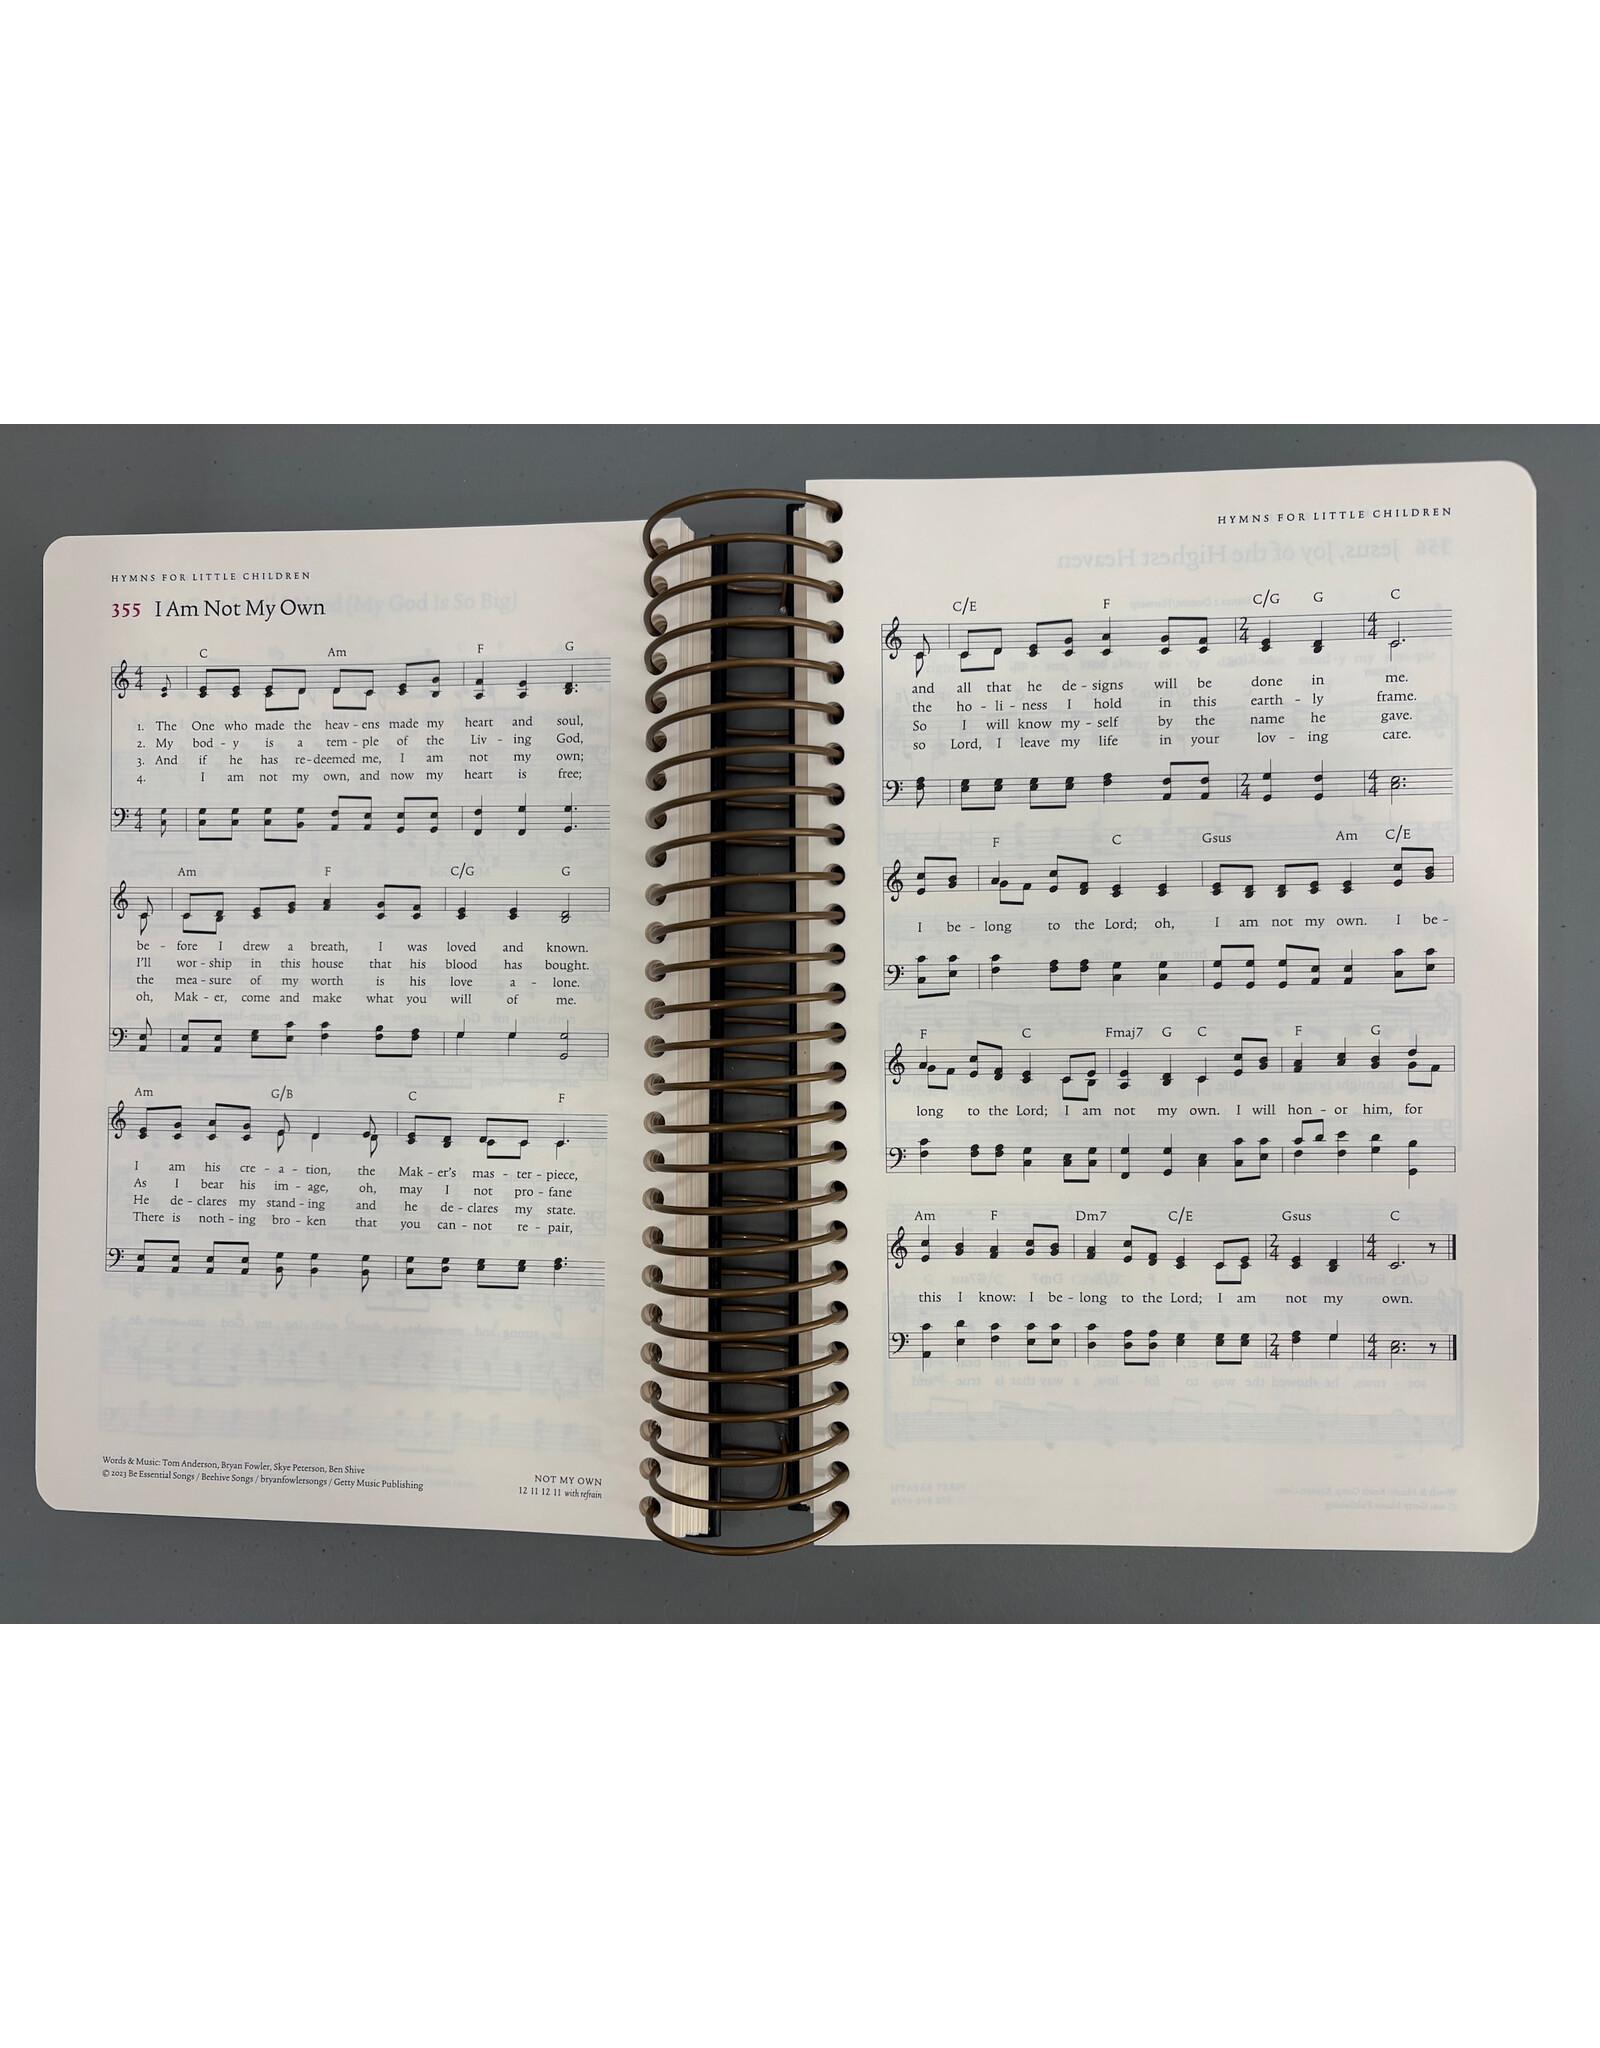 HYMNS FOR LITTLE CHILDREN
355 I Am Not My Own
C Am F G
4 4
1. The One who made the heav - ens made my heart and soul,
2. My bod - y is a tem - ple of the Liv - ing God,
3. And if he has re - deemed me, I am not my own;
4. I am not my own, and now my heart is free;
4 4
Am F C/G G
be - fore I drew a breath, I was loved and known.
I'll wor - ship in this house that his blood has bought.
the mea - sure of my worth is his love a - lone.
oh, Mak - er, come and make what you will of me.
Am G/B C F
I am his cre - a - tion, the Mak - er's mas - ter - piece,
As I bear his im - age, oh, may I not pro - fane
He de - clares my stand - ing and he de - clares my state.
There is noth - ing bro - ken that you can - not re - pair,
Words & Music: Tom Anderson, Bryan Fowler, Skye Peterson, Ben Shive
© 2023 Be Essential Songs / Beehive Songs / bryanfowlersongs / Getty Music Publishing
NOT MY OWN
12 11 12 11 with refrain
HYMNS FOR LITTLE CHILDREN
C/E F C/G G C
2 4 4 4
and all that he de - signs will be done in me.
the ho - li - ness I hold in this earth - ly frame.
So I will know my - self by the name he gave.
so Lord, I leave my life in your lov - ing care.
2 4 4 4
F C Gsus Am C/E
I be - long to the Lord; oh, I am not my own. I be -
F C Fmaj7 G C F G
long to the Lord; I am not my own. I will hon - or him, for
Am F Dm7 C/E Gsus C
2 4 4 4
this I know: I be - long to the Lord; I am not my own.
2 4 4 4